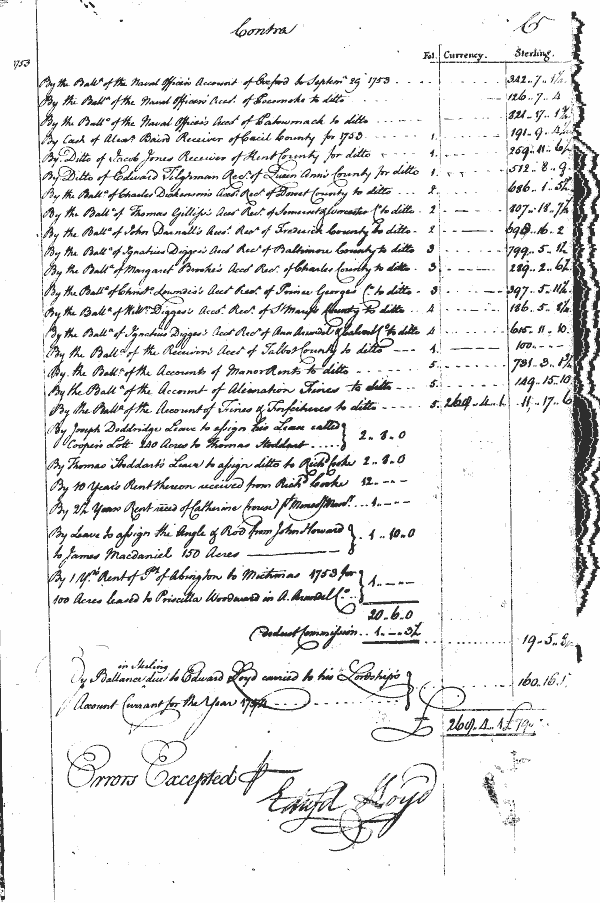 Contra
Fol. Currency. Sterling.
1753
By the Ball.ce of the Naval Officers Account of Oxford to Septem.r 29 1753 322..7..1½
By the Ball.ce of the Naval Officers Acco.t of Pocomoke to ditto 126..7..4
By the Ball.ce of the Naval Officers Acco.t of Patowmack to ditto 221..17..1¾
By Cash of Alex.r Baird Receiver of Cæcil County for 1753 1. 191..9..4
By Ditto of Jacob Jones Receiver of Kent County for ditto 1. 259..11..6½
By Ditto of Edward Tilghman Rec.r of Queen Ann's County for ditto 1. 512..8..9
By the Ball.ce of Charles Dickenson's Acco.t Rec.r of Dorset County to ditto 2. 686..1..5¾
By the Ball.ce of Thomas Gillis's Acco.t Rec.r of Somerset & Worcester C.o to ditto 2 807..18..7½
By the Ball.ce of John Darnall's Acco.t Rec.r of Frederick County to ditto 2 698..16..2
By the Ball.ce of Ignatius Digges's Acco.t Rec.r of Baltimore County to ditto 3 799..5..1½
By the Ball.ce of Margaret Brooke's Acco.t Rec.r of Charles County to ditto 3 289..2..6¾
By the Ball.ce of Christ.r Lowndes's Acco.t Rec.r of Prince George's C.o to ditto 3 397..5..11½
By the Ball.ce of W.m Digges's Acco.t Rec.r of S.t Mary's County to ditto 4 186..5..8¼
By the Ball.ce of Ignatius Digges's Acco.t Rec.r of Ann Arundel & Calvert C.o to ditto 4 615..11..10
By the Ball.ce of the Receivers Acco.t of Talbot County to ditto 1. 100
By the Ball.ce of the Accounts of Manor Rents to ditto 5 731..3..1¾
By the Ball.ce of the Account of Alienation Fines to ditto 5. 149..15..10
By the Ball.ce of the Account of Fines & Forfeitures to ditto 5. 269..4..1 11..17..6
By Joseph Doddridge Leave to assign his Lease called
Coopers Lott 240 Acres to Thomas Stoddart 2..8..0
By Thomas Stoddart's Leave to assign ditto to Rich.d Cooke 2..8..0
By 10 Years Rent thereon received from Rich.d Cooke 12
By 2½ Years Rent reced of Catherine 1
By Leave to assign the Angle of Rod from John Howard
to James Macdaniel 150 Acres 1..10..0
By 1 Y.rs Rent of P.t of Abington to Micmas 1753 for
100 Acres leased to Priscilla Woodward in A. Arundel C.o 1
20..6..0
deduct Commission 1..-..3½
19..5..8½
in Sterling
By Ballance due to Edward Lloyd carried to his Lordship's
Account Currant for the Year 1754 160..16..5
£ 269..4..1
Errors Excepted p
Edw.d Lloyd